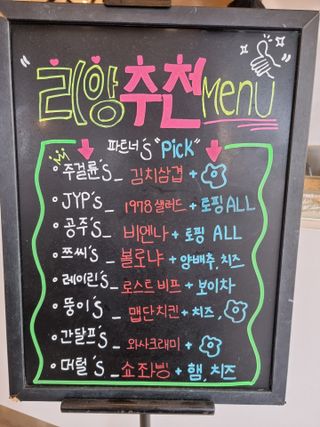 리앙추천MENU
파트너's "Pick"
주걸륜's_ 김치삼겹 +
JYP's_ 1978 샐러드 + 토핑 ALL
공주's_ 비엔나 + 토핑 ALL
쯔씨's_ 볼로냐 + 양배추, 치즈
레이린's_ 로스트비프 + 보이차
뚱이's_ 맵단치킨 + 치즈,
간달프's_ 와사크래미 +
머털's_ 쇼좌빙 + 햄, 치즈